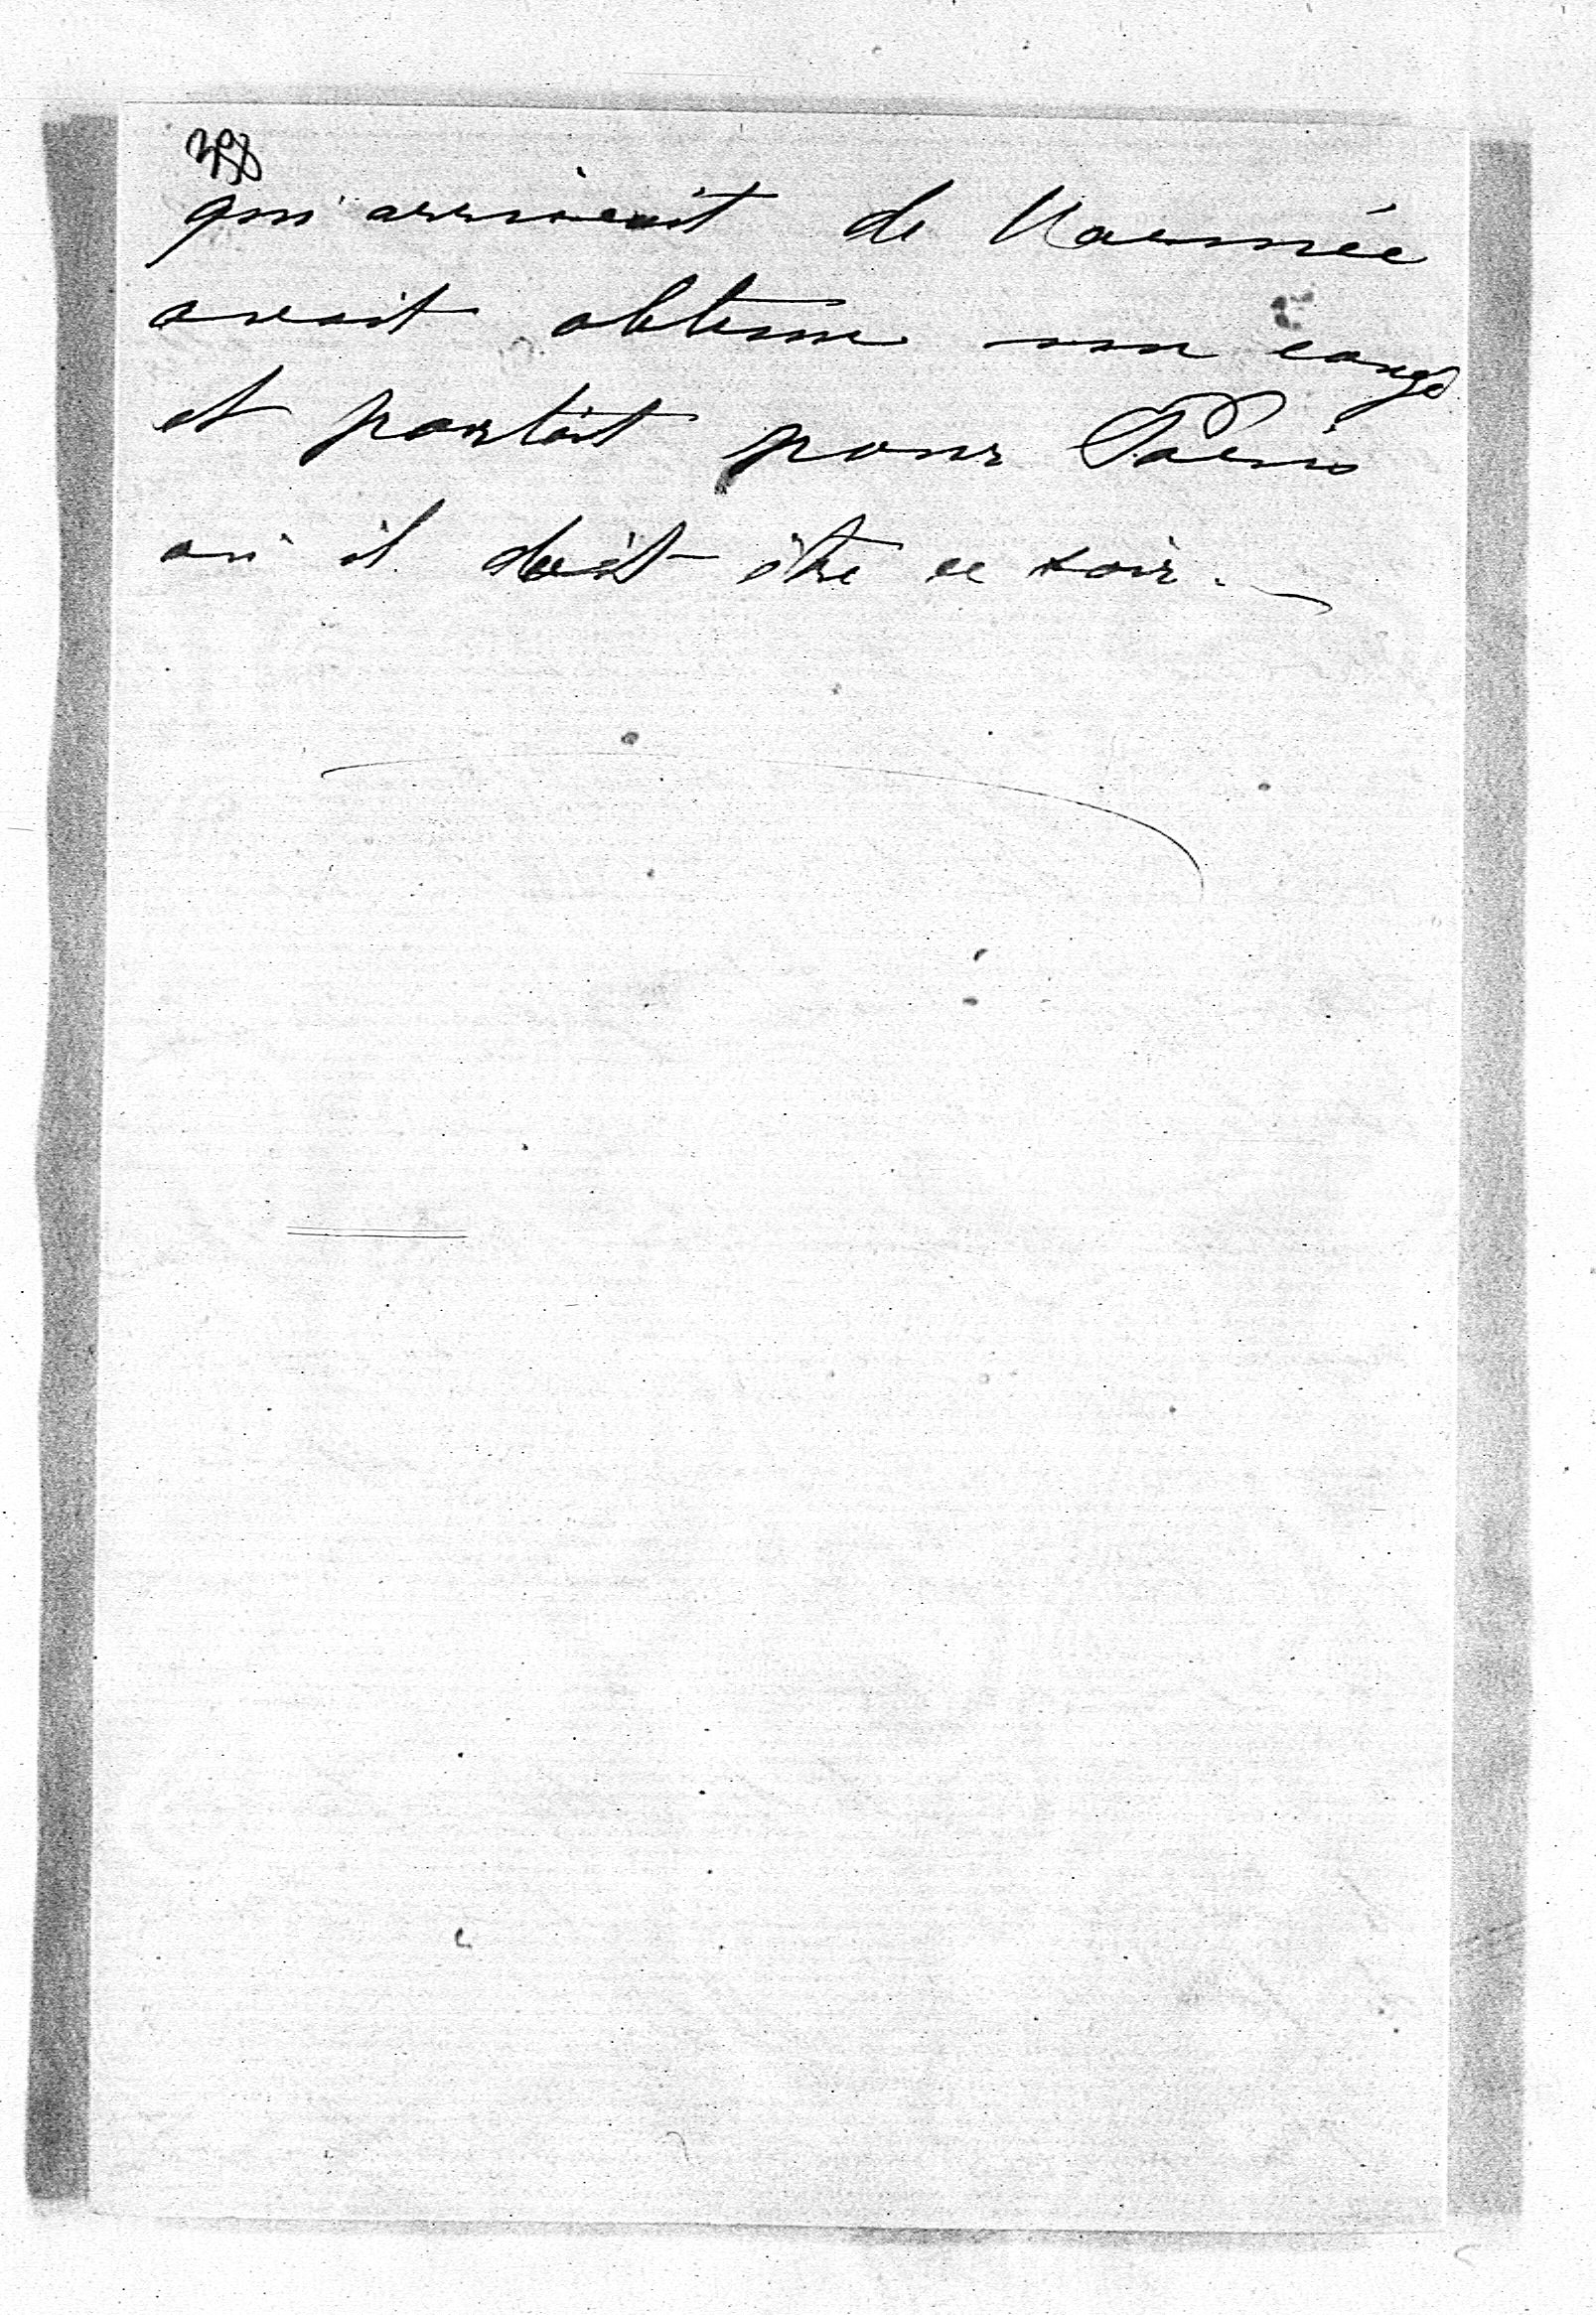 398
qui arrivait de Nouméa
avait obtenu un congé
et partait pour Paris
où il doit être ce soir.